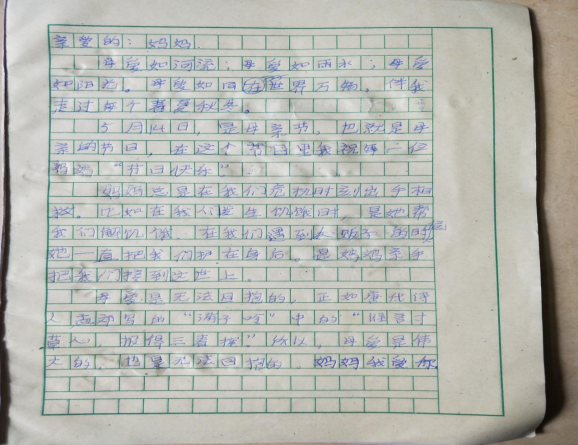 亲爱的：妈妈
母爱如河流；母爱如雨水；母爱
如阳光。母爱如同世界万物。伴我
走过每个春夏秋冬。
5月14日，是母亲节，也就是母
亲的节日，在这个节日里我祝每一位
母亲“节日快乐”
妈妈总是在我们危机时刻出手相
救。比如在我们，是她帮
我们。在我们遇到人贩子的时候
她一直把我们护在身后。是妈妈亲手
把我们带到这世上
母爱是无法回报的，正如唐代诗
人孟郊写的“游子吟”中的“谁言寸
草心，报得三春晖”所以，母爱是伟
大的，也是无法回报的 妈妈我爱你